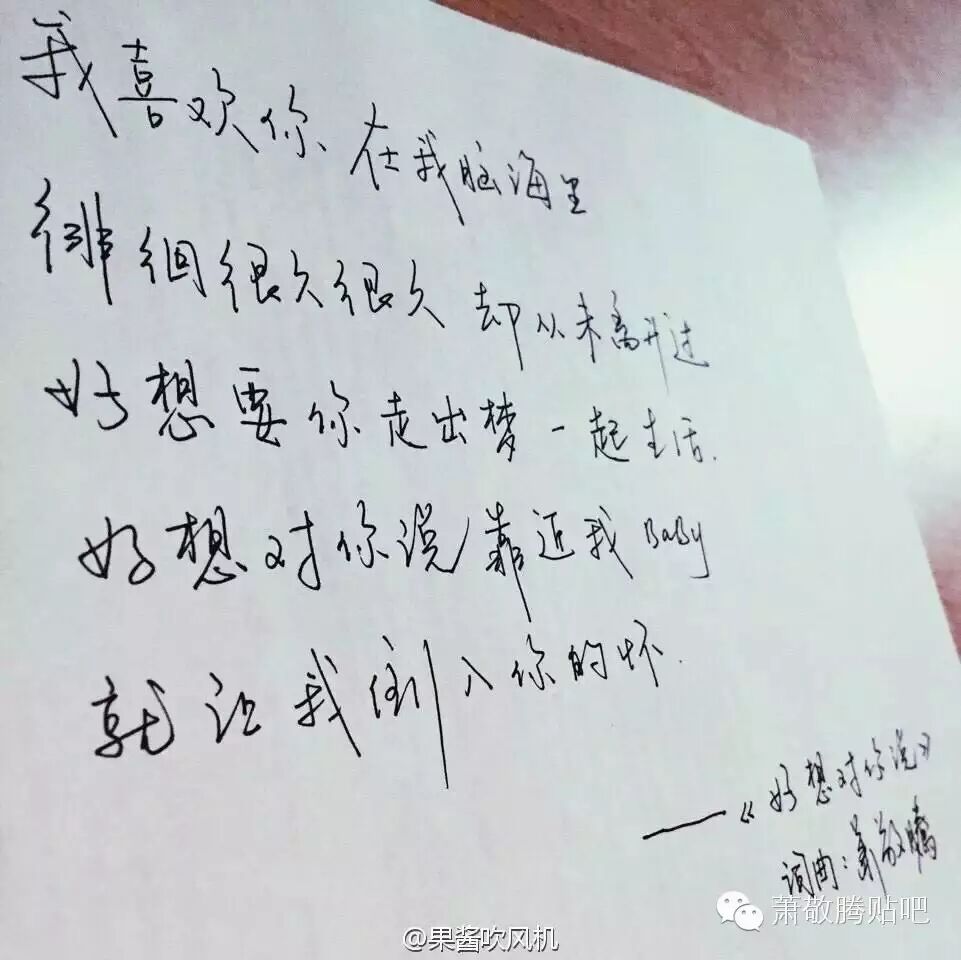 我喜欢你 在我脑海里
徘徊很久很久 却从未离开过
好想要你走出梦一起生活.
好想对你说靠近我 BaBy
就让我倒入你的怀.
——《好想对你说》
词曲:萧敬腾
萧敬腾贴吧
@果酱吹风机